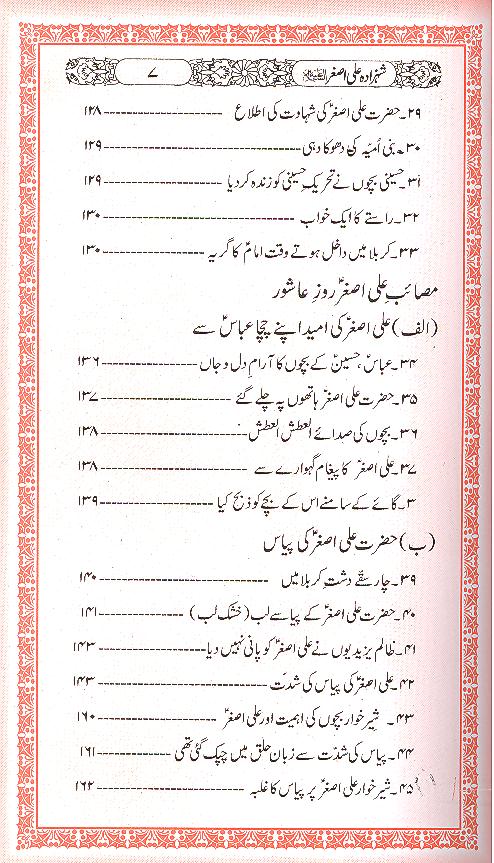 شہزادہ علی اصغر علیہ السلام ۷
۲۹۔ حضرت علی اصغرؑ کی شہادت کی اطلاع ---------------------- ۱۲۸
۳۰۔ بنی اُمیّہ کی دھوکا دہی ---------------------------------- ۱۲۹
۳۱۔ حسینی بچوں نے تحریکِ حسینی کو زندہ کر دیا -------------------- ۱۲۹
۳۲۔ راستے کا ایک خواب ---------------------------------- ۱۳۰
۳۳۔ کربلا میں داخل ہوتے وقت امامؑ کا گریہ -------------------- ۱۳۰
مصائبِ علی اصغرؑ روزِ عاشور
(الف) علی اصغرؑ کی امید اپنے چچا عباسؑ سے
۳۴۔ عباسؑ، حسینؑ کے بچوں کا آرامِ دل و جاں ------------------ ۱۳۶
۳۵۔ حضرت علی اصغرؑ ہاتھوں پہ چلے گئے ----------------------- ۱۳۷
۳۶۔ بچوں کی صدائے العطش العطش ------------------------- ۱۳۸
۳۷۔ علی اصغرؑ کا پیغام گہوارے سے ------------------------- ۱۳۸
۳۔ گائے کے سامنے اس کے بچے کو ذبح کیا -------------------- ۱۳۹
(ب) حضرت علی اصغرؑ کی پیاس
۳۹۔ چار سقّے دشتِ کربلا میں ----------------------------- ۱۴۰
۴۰۔ حضرت علی اصغرؑ کے پیاسے لب (خشک لب) ---------------- ۱۴۱
۴۱۔ ظالم یزیدیوں نے علی اصغرؑ کو پانی نہیں دیا --------------------- ۱۴۳
۴۲۔ علی اصغرؑ کی پیاس کی شدّت ----------------------------- ۱۴۳
۴۳۔ شیر خوار بچوں کی اہمیت اور علی اصغرؑ ----------------------- ۱۶۰
۴۴۔ پیاس کی شدّت سے زبان حلق میں چپک گئی تھی --------------- ۱۶۱
۴۵۔ شیر خوار علی اصغرؑ پر پیاس کا غلبہ -------------------------- ۱۶۲